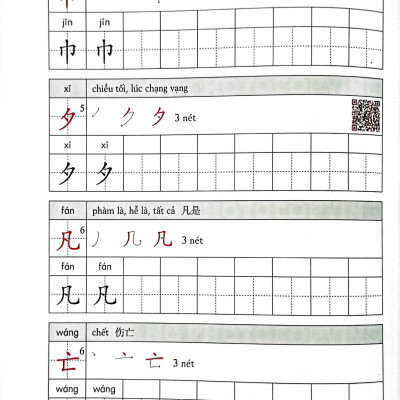 jīn jīn
巾 巾
xī chiều tối, lúc chạng vạng
夕 5 ㇒ ク 夕 3 nét
xī xī
夕 夕
fán phàm là, hễ là, tất cả 凡是
凡 6 丿 几 凡 3 nét
fán fán
凡 凡
wáng chết 伤亡
亡 6 丶 亠 亡 3 nét
wáng wáng